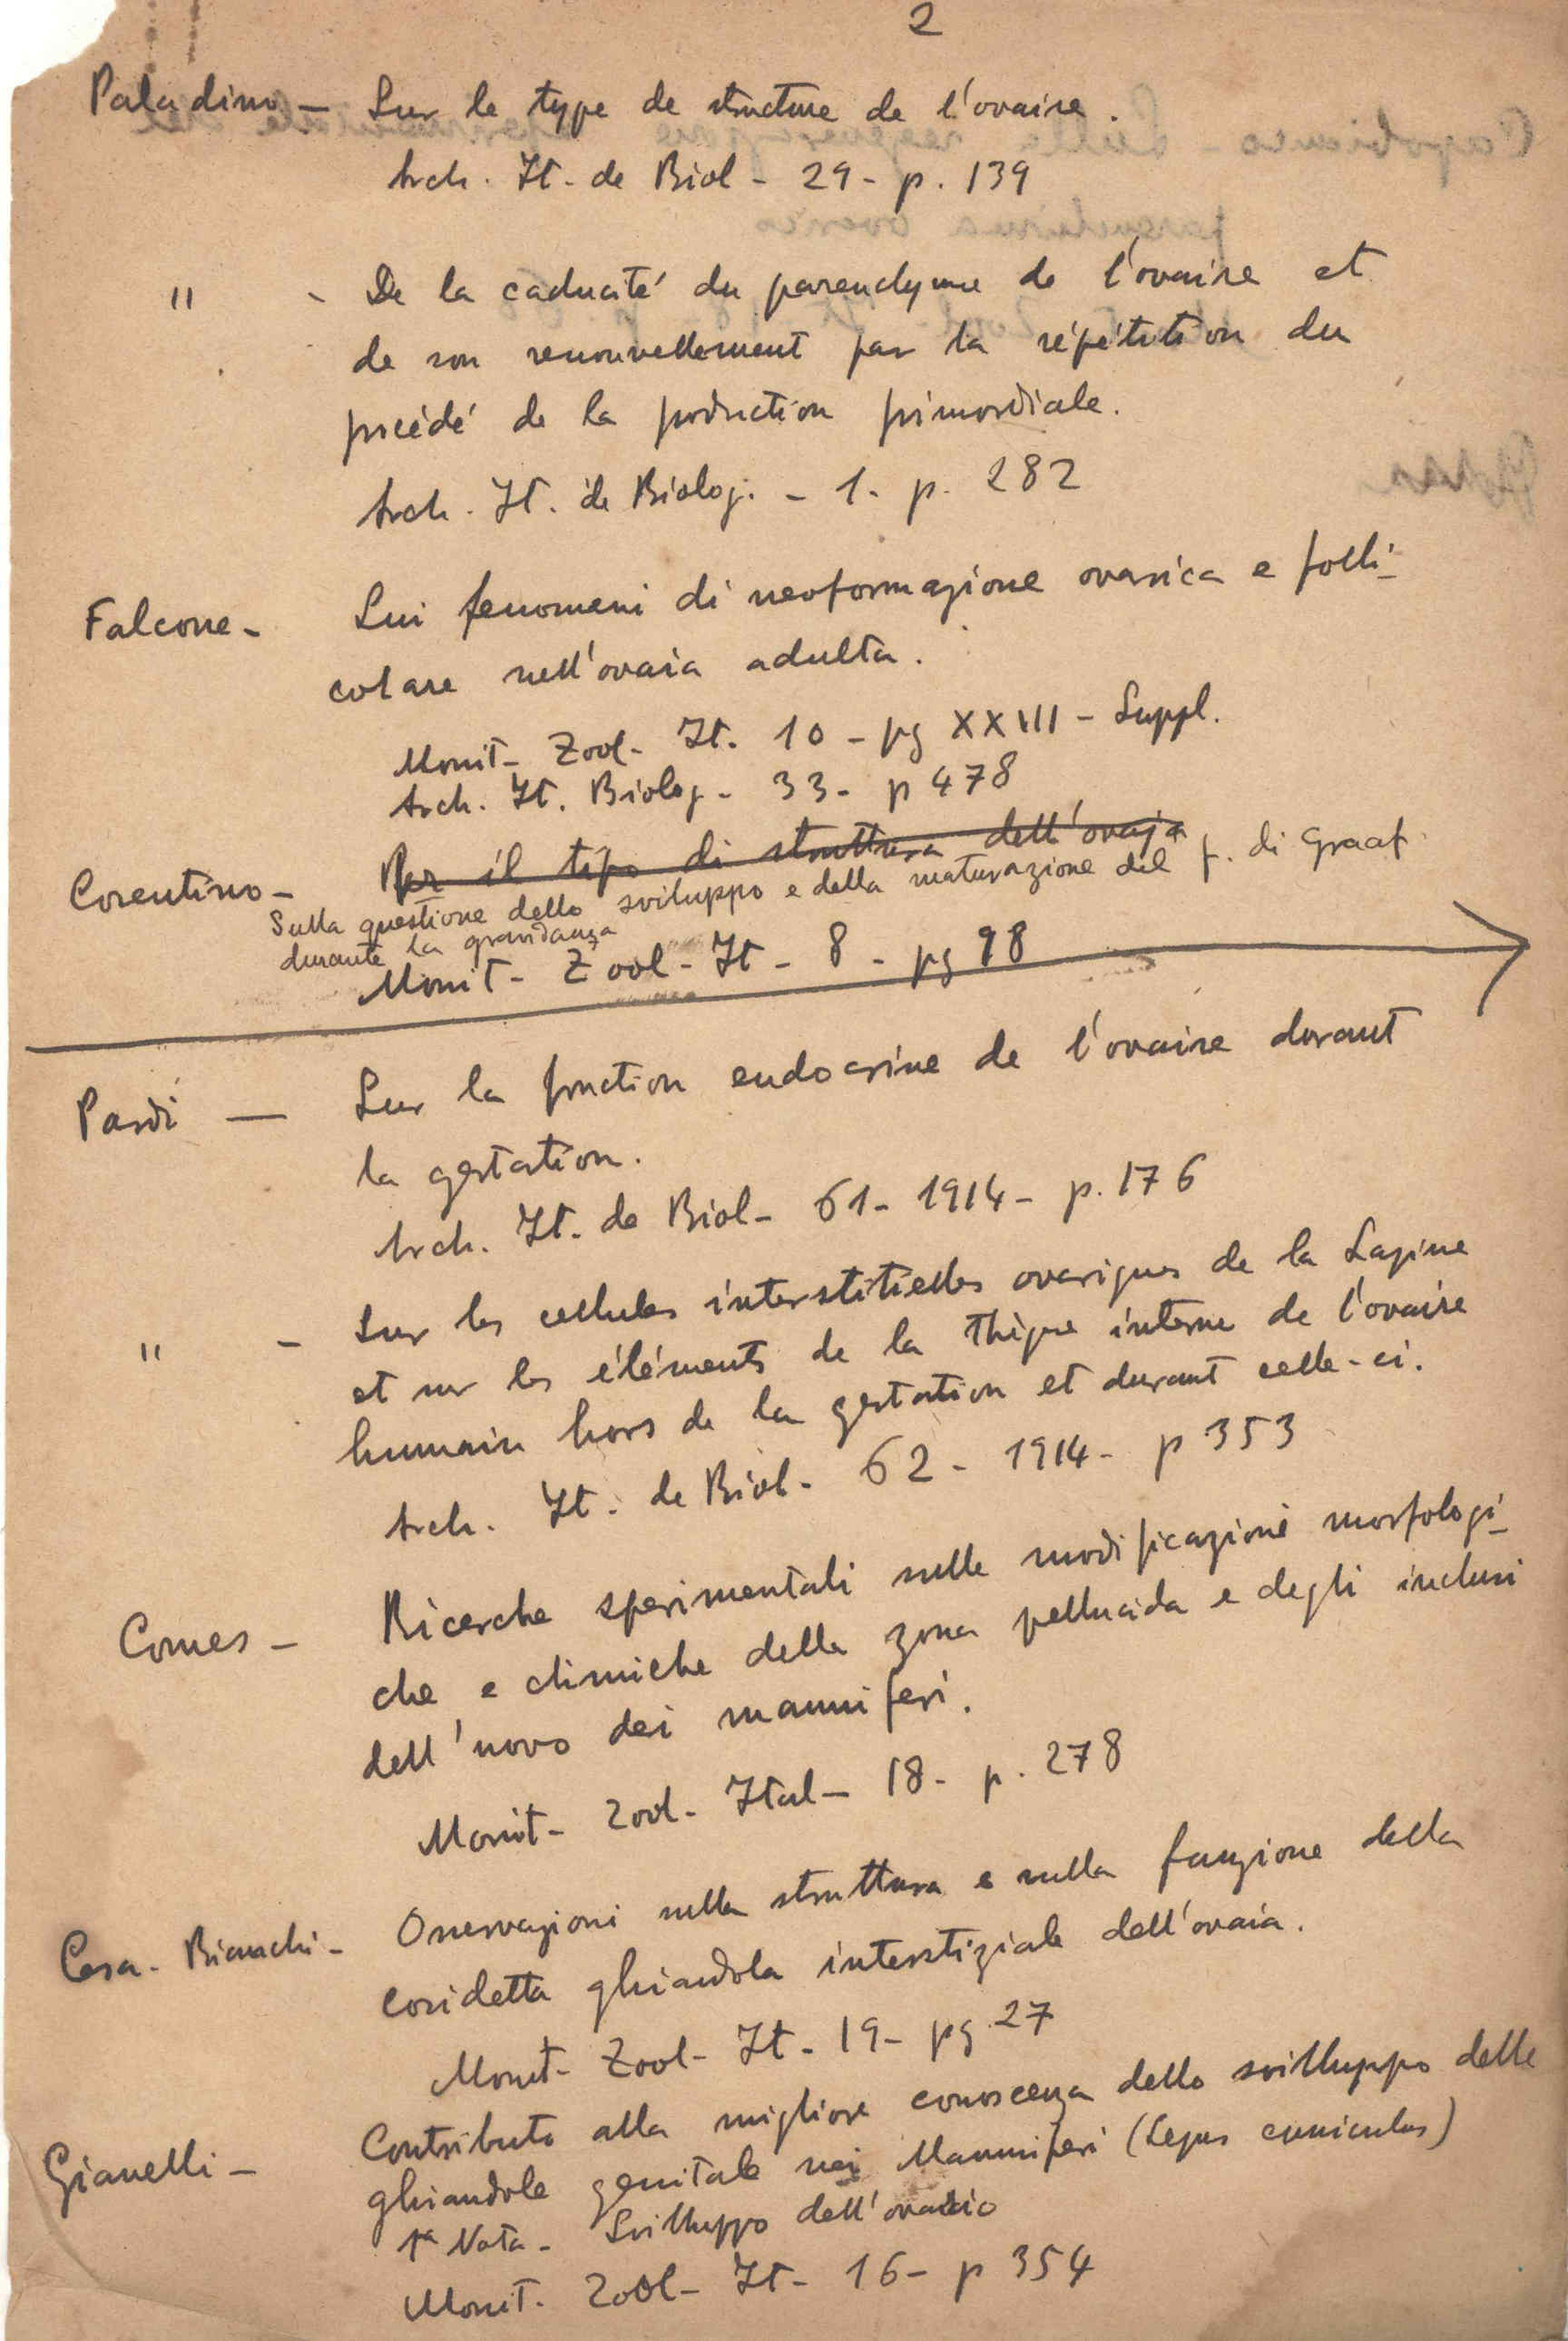 2
Paladino - Sur le type de structure de l'ovaire.
Arch. It. de Biol - 29 - p. 139
" - De la caducité du parenchyme de l'ovaire et
de son renouvellement par la répétition du
procédé de la production primordiale.
Arch. It. de Biolog. - 1. p. 282
Falcone - Sui fenomeni di neoformazione ovarica e folli-
colare nell'ovaia adulta.
Monit - Zool - It. 10 - pg XXIII - Suppl.
Arch. It. Biolog - 33 - p 478
Corentino - Per il tipo di struttura dell'ovaja
Sulla questione dello sviluppo e della maturazione del f. di Graaf
durante la gravidanza
Monit - Zool - It - 8 - pg 98
Pardi - Sur la fonction endocrine de l'ovaire durant
la gestation.
Arch. It. de Biol - 61 - 1914 - p. 176
" - Sur les cellules interstitielles ovariques de la Lapine
et sur les éléments de la thèque interne de l'ovaire
humain hors de la gestation et durant celle-ci.
Arch. It. de Biol - 62 - 1914 - p 353
Comes - Ricerche sperimentali sulle modificazioni morfologi-
che e chimiche della zona pellucida e degli inclusi
dell'uovo dei mammiferi.
Monit - Zool - Ital - 18 - p. 278
Cesa-Bianchi - Osservazioni sulla struttura e sulla funzione della
cosidetta ghiandola interstiziale dell'ovaia.
Monit - Zool - It - 19 - pg 27
Gianelli - Contributo alla migliore conoscenza dello svilluppo delle
ghiandole genitale nei Mammiferi (Lepus cuniculus)
1ª Nota - Svilluppo dell'ovaio
Monit. Zool - It - 16 - p 354